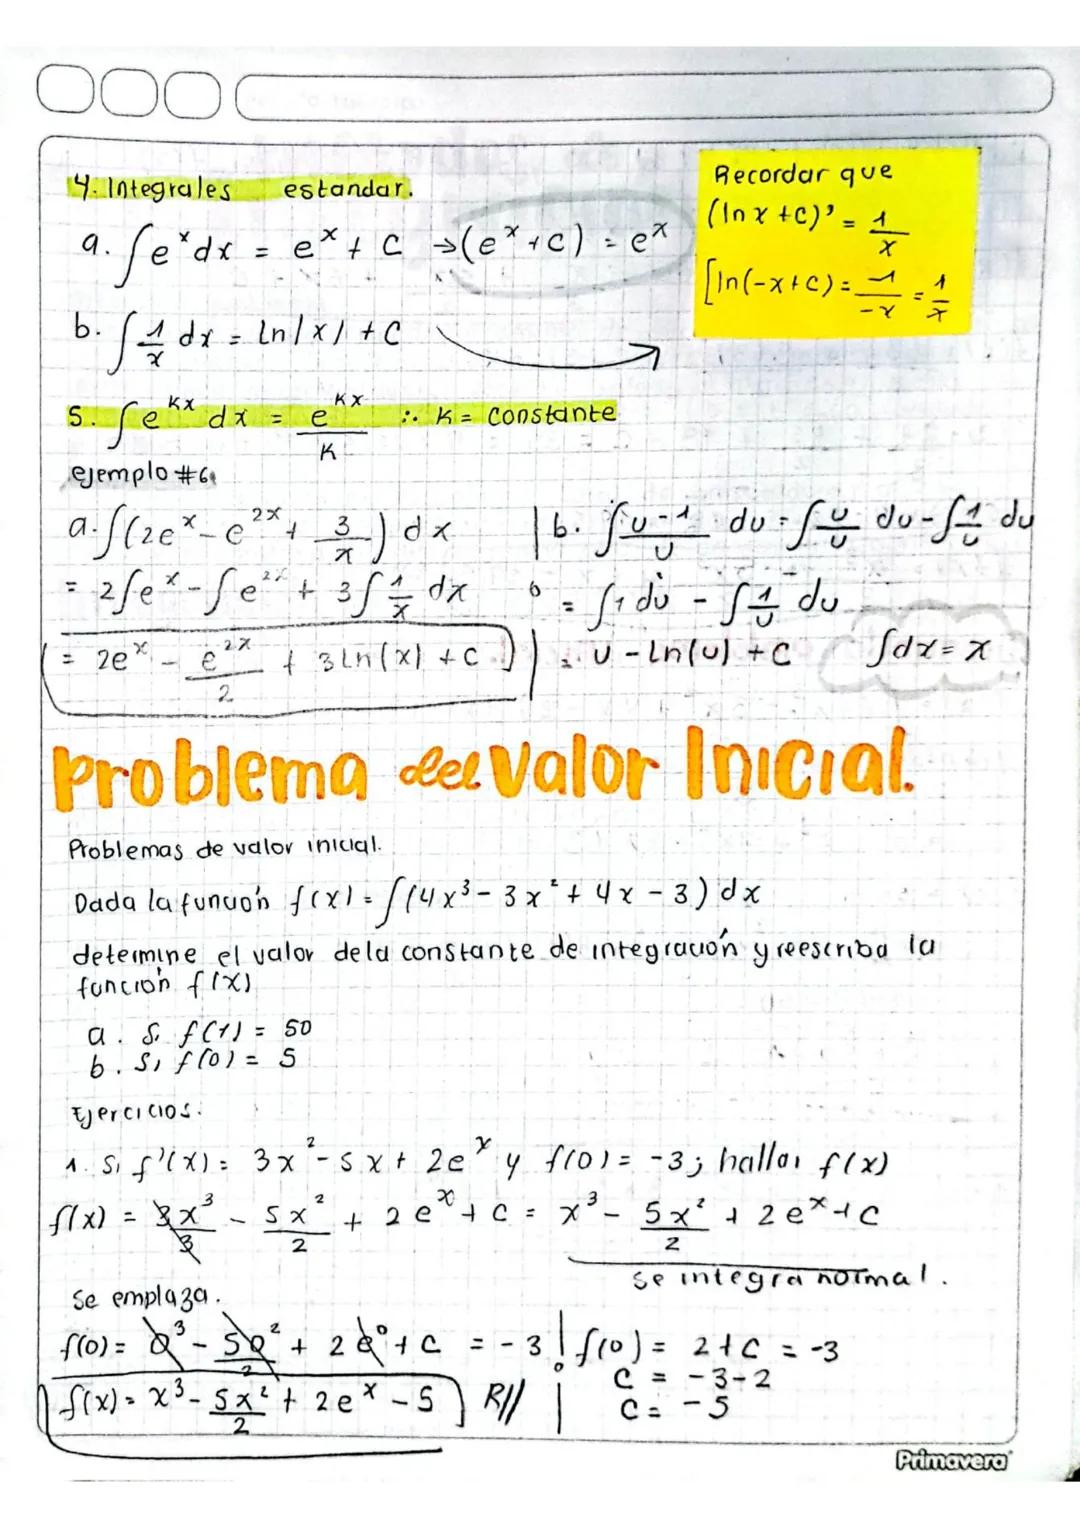 4. Integrales estandar.
a. ∫e^x dx = e^x + C →(e^x + c) = e^x
b. ∫ 1/x dx = Ln|x| + C
Recordar que
(ln x + c)' = 1/x
[ln(-x+c) = -1/-x = 1/x
5. ∫e^kx dx = e^kx/K ∴ K = Constante
ejemplo #6
a. ∫(2e^x - e^2x + 3/x) dx
= 2∫e^x - ∫e^2x + 3∫ 1/x dx
= 2e^x - e^2x/2 + 3Ln(x) + C
b. ∫ u-1/u du = ∫ u/u du - ∫ 1/u du
= ∫1 du - ∫ 1/u du
= u - Ln(u) + C
∫dx = x
Problema del Valor Inicial.
Problemas de valor inicial.
Dada la función f(x) = ∫(4x³ - 3x² + 4x - 3) dx
determine el valor de la constante de integración y reescriba la
función f(x)
a. Si f(1) = 50
b. Si f(0) = 5
Ejercicios.
1. Si f'(x) = 3x² - 5x + 2e^x y f(0) = -3; hallar f(x)
f(x) = 3x³/3 - 5x²/2 + 2e^x + C = x³ - 5x²/2 + 2e^x + C
se integra normal.
Se emplaza.
f(0) = 0³ - 50²/2 + 2e^0 + C = -3
f(x) = x³ - 5x²/2 + 2e^x - 5 R//
f(0) = 2 + C = -3
C = -3-2
C = -5
Primavera